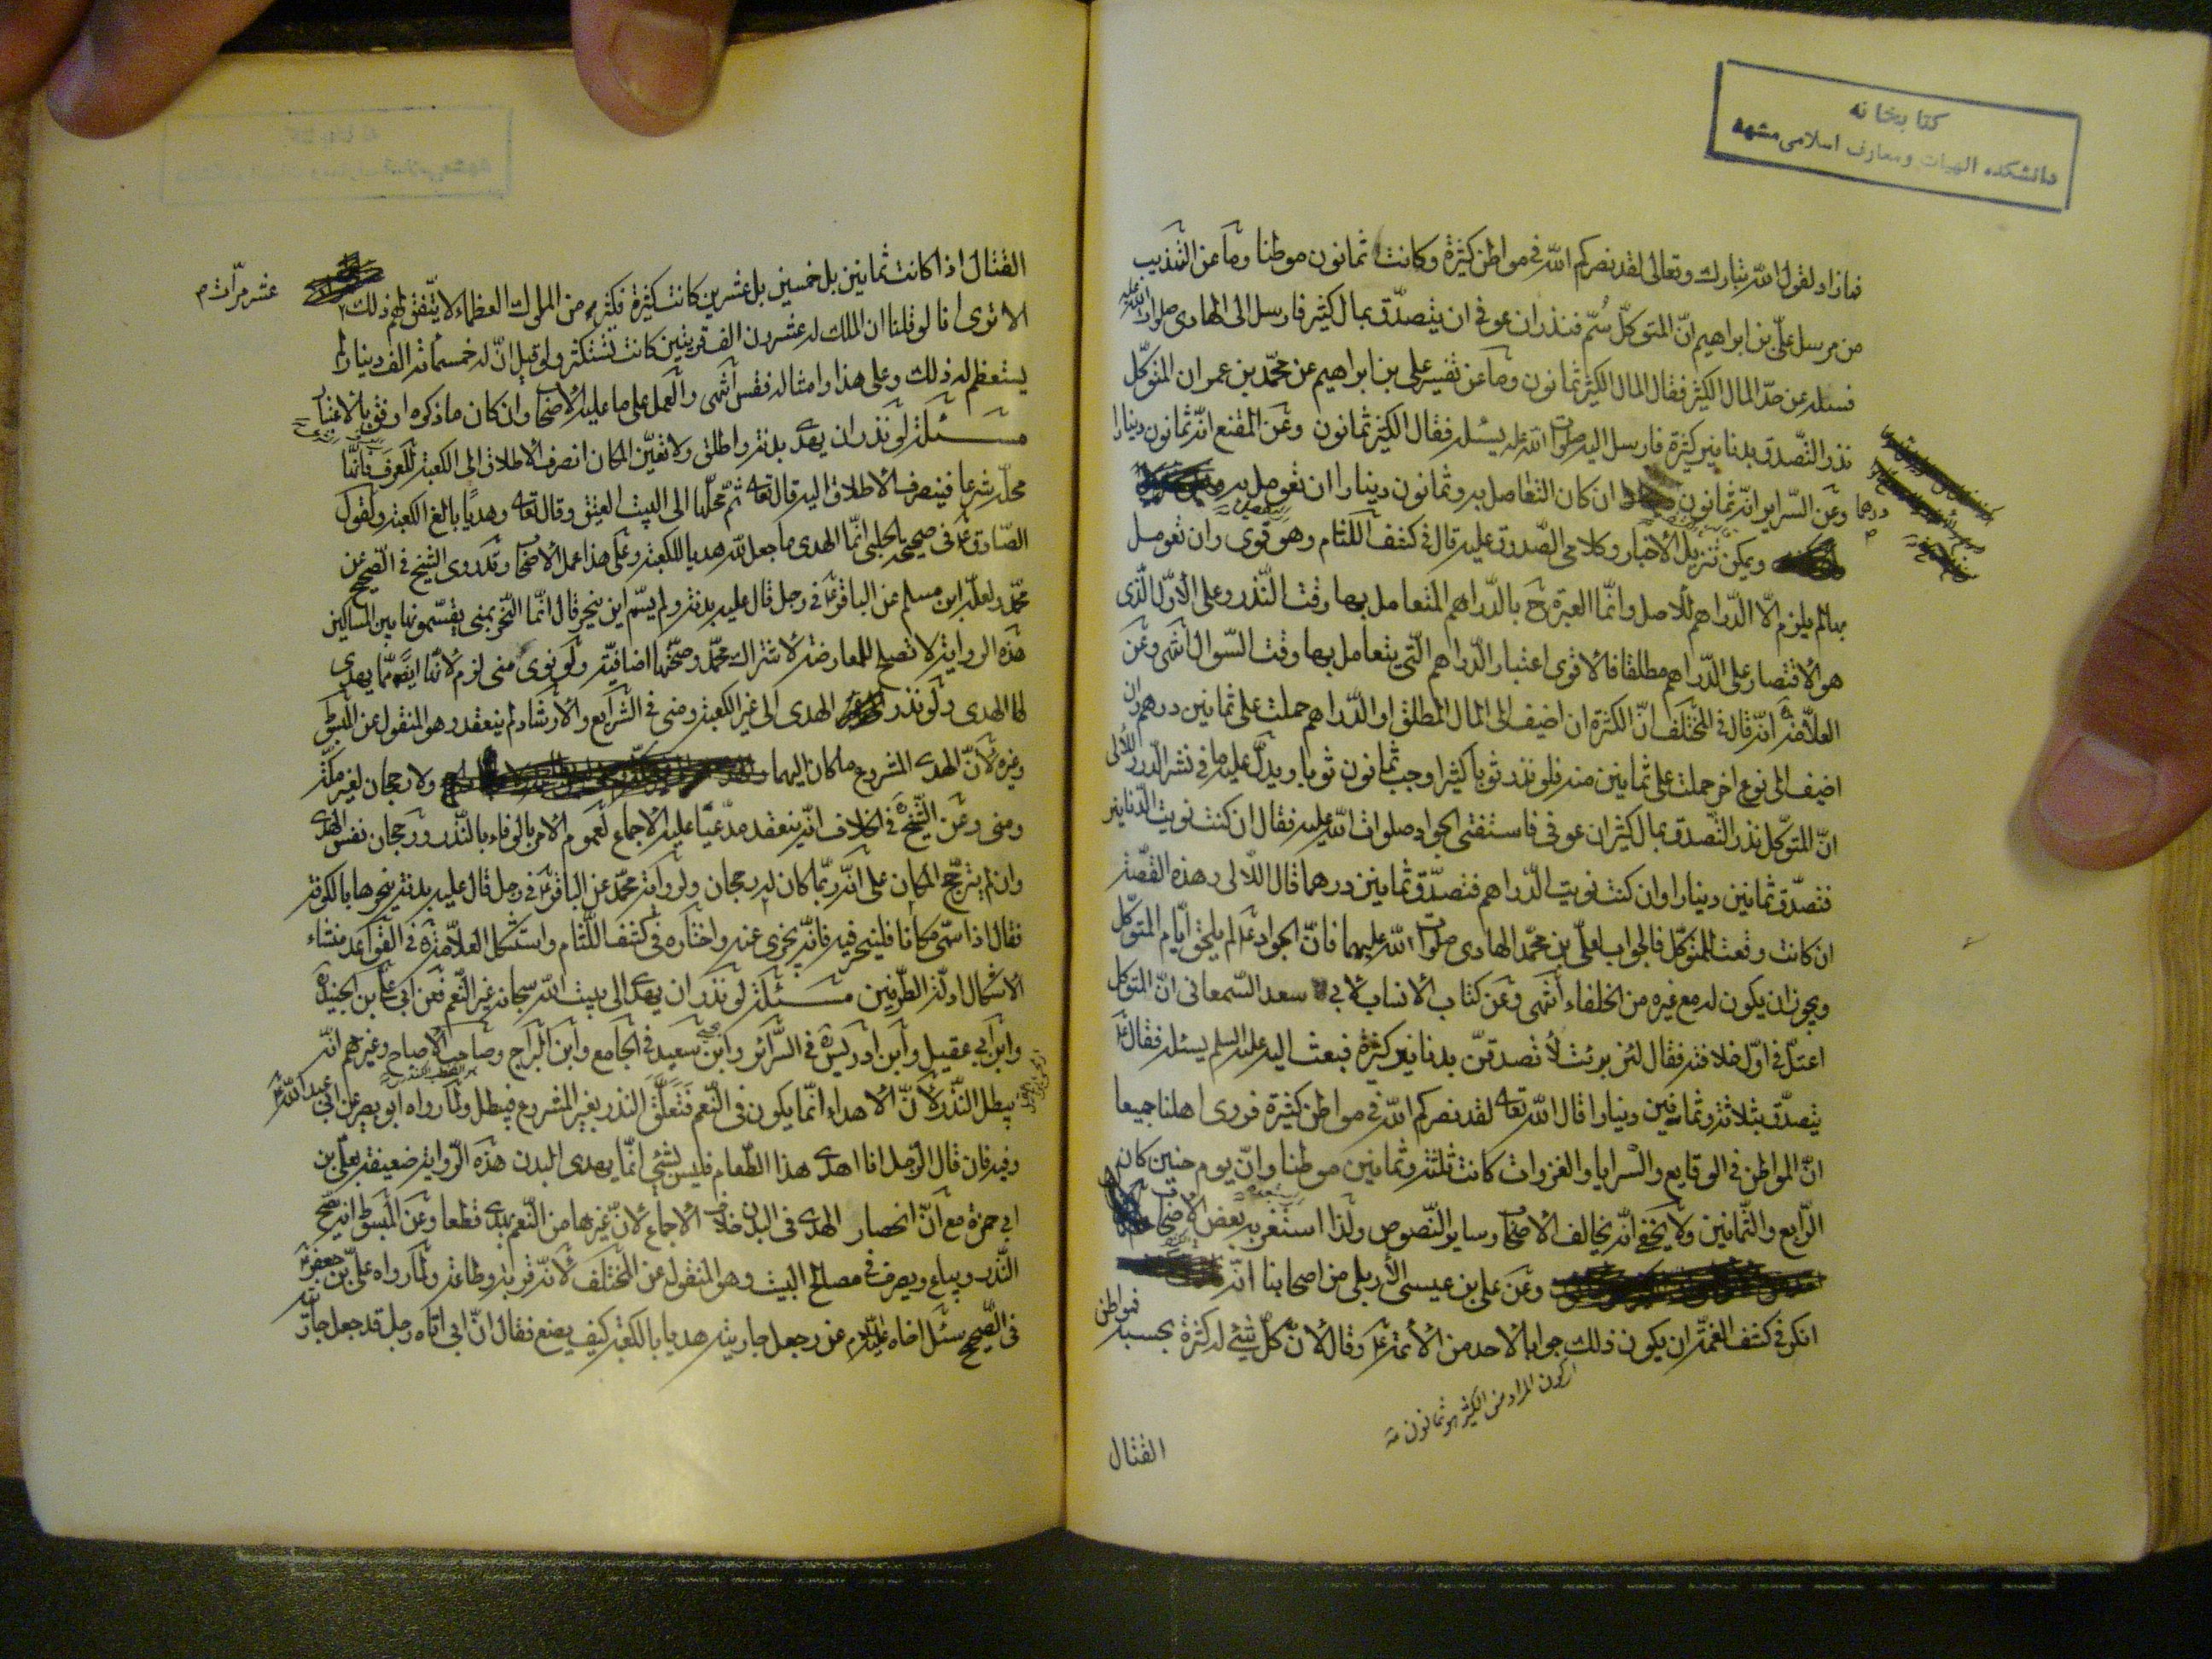 كتابخانه
دانشكده الهيات ومعارف اسلامی مشهد
فمازاد لقول الله تبارك وتعالى لقد نصركم الله فى مواطن كثيرة وكانت ثمانون موطنا وما عن التهذيب
من مرسل علىّ بن ابراهيم انّ المتوكّل سُمّ فنذر ان عوفى ان يتصدّق بمال كثير فارسل الى الهادى صلوات الله عليه
فسئله عن حدّ المال الكثير فقال المال الكثير ثمانون وما عن تفسير على بن ابراهيم عن محمّد بن عمر ان المتوكّل
نذر التّصدق بدنانير كثيرة فارسل اليه صلوات الله عليه يسئله فقال الكثير ثمانون وعن المقنع انّه ثمانون دينارا
وعن السّراير انّه ثمانون درهما ان كان التعامل به وثمانون دينارا ان تعومل به
ويمكن تنزيل الأخبار وكلامى الصّدوق عليه قال فى كشف اللثام وهو قوى وان تعومل
بهما لم يلزم الّا الدّراهم للأصل وانّما العبرة ح بالدّراهم المتعامل بها وقت النّذر وعلى الأوّل الّذى
هو الأقتصار على الدّراهم مطلقا فالأقوى اعتبار الدّراهم الّتى يتعامل بها وقت السّؤال انتهى وعن
العلّامة ره انّه قال فى المختلف انّ الكثرة ان اضيف الى المال المطلق او الدّراهم حملت على ثمانين درهم وان
اضيف الى نوع اخر حملت على ثمانين منه فلو نذر ثوبا كثيرا وجب ثمانون ثوبا ويدلّ عليه ما فى نثر الدّرر للألى
انّ المتوكّل نذر التّصدق بمال كثير ان عوفى فاستفتى الجواد صلوات الله عليه فقال ان كنت نويت الدّنانير
فتصدّق ثمانين دينارا وان كنت نويت الدّراهم فتصدّق ثمانين درهما قال اللآلى وهذه القصّة
ان كانت وقعت للمتوكّل فالجواب لعلىّ بن محمّد الهادى صلوات الله عليهما فانّ الجواد ع لم يلحق ايّام المتوكّل
ويجوز ان يكون له مع غيره من الخلفاء انتهى وعن كتاب الأنساب لأبى سعد السّمعانى انّ المتوكل
اعتلّ فى اوّل خلافته فقال لئن برئت لأتصدقنّ بدنانير كثيرة فبعث اليه عليه السلم يسئله فقال ع
يتصدّق بثلاثة وثمانين دينارا قال الله تعه لقد نصركم الله فى مواطن كثيرة فروى اهلنا جميعا
انّ المواطن فى الوقايع والسّرايا والغزوات كانت ثلثة وثمانين موطنا وانّ يوم حنين كان
الرّابع والثّمانين ولا يخفى انّه يخالف الأصحاب وساير النّصوص ولذا استغربه بعض الأصحاب
وعن على بن عيسى الأربلى من اصحابنا انّه
انكر فى كشف الغمّة ان يكون ذلك جوابا لاحد من الأئمّة ع وقال لانّ كلّ شيئ له كثرة بحسبه فمواطن
اى كون المراد من الكثير هو ثمانون منه
القتال
القتال اذا كانت ثمانين بل خمسين بل عشرين كانت كثيرة فكثير من الملوك العظماء لا يتّفق لهم ذلك
عشر مرّات م
الا ترى انا لو قلنا ان الملك له عشرون الف قريتين كانت تستكثر ولو قيل انّ له خمسمائة الف دينار لم
يستعظم له ذلك وعلى هذا وامثاله فقس انتهى والعمل على ما عليه الأصحاب وان كان ما ذكره اوفق بالأعتبار
مسئلة لو نذر ان يهدى بدنة واطلق ولا تعيّن المكان انصرف الأطلاق الى الكعبة للعرف فانّها
محلّه شرعا فينصرف الأطلاق اليه قال تعه ثمّ محلّها الى البيت العتيق وقال تعه وهديًا بالغ الكعبة ولقول
الصّادق ع فى صحيح الحلبى انّما الهدى ما جعل لله هديا للكعبة وعلى هذا عمل الأصحاب وقد روى الشيخ فى الصّحيح عن
محمّد ولعلّه ابن مسلم عن الباقر ع فى رجل قال عليه بدنة ولم يسّم اين ينحر قال انّما النّحر بمنى يقسّمونها بين المساكين
هذه الرواية لا تصلح للمعارضة لاشتراك محمّد وصحّتها اضافيّة ولو نوى منى لزم لانّها ايضًا ممّا يهدى
لها الهدى ولو نذر الهدى الى غير الكعبة ومنى فى الشّرايع والأرشاد لم ينعقد وهو المنقول عن المبسوط
وغيره لأنّ الهدى المشروع ما كان اليهما ولا رجحان لغير مكّة
ومنى وعن الشّيخ ره فى الخلاف انّه ينعقد مدّعيًا عليه الأجماع لعموم الأمر بالوفاء بالنّذر ورجحان نفس الهدى
وان لم يترجّح المكان على انّه ربّما كان له رجحان ولرواية محمّد عن الباقر ع فى رجل قال عليه بدنة ينحرها بالكوفة
فقال اذا سمّى مكانا فلينحر فيه فانّه يجزى عنه واختاره فى كشف اللّثام واستشكل العلّامة ره فى القواعد منشاء
الأشكال ادلّة الطّرفين مسئلة لو نذر ان يهدى الى بيت الله سبحانه غير النّعم فعن ابى علىّ بن الجنيد ره
وابن ابى عقيل وابن ادريس ره فى السّرائر وابن سعيد فى الجامع وابن البراج وصاحب الأصباح وغيرهم انّه
يبطل النّذر لأنّ الأهداء انّما يكون فى النّعم فتعلّق النذر بغير المشروع فيبطل ولما رواه ابو بصير عن ابى عبد الله ع
وفيه فان قال الرّجل انا اهدى هذا الطّعام فليس بشئى انّما يهدى البدن هذه الرّواية ضعيفة بعلى بن
ابى حمزة مع انّ انحصار الهدى فى البدن خلاف الأجماع لانّ غيرها من النّعم يهدى قطعا وعن المبسوط انّه يصّح
النّذر ويباع ويصرف فى مصالح البيت وهو المنقول عن المختلف لأنّه قربة وطاعة ولما رواه علىّ بن جعفر ع
فى الصّحيح سئل اخاه عليه السّلم عن رجل جعل جاريته هديا بالكعبة كيف يصنع فقال انّ ابى اتاه رجل قد جعل جاريته